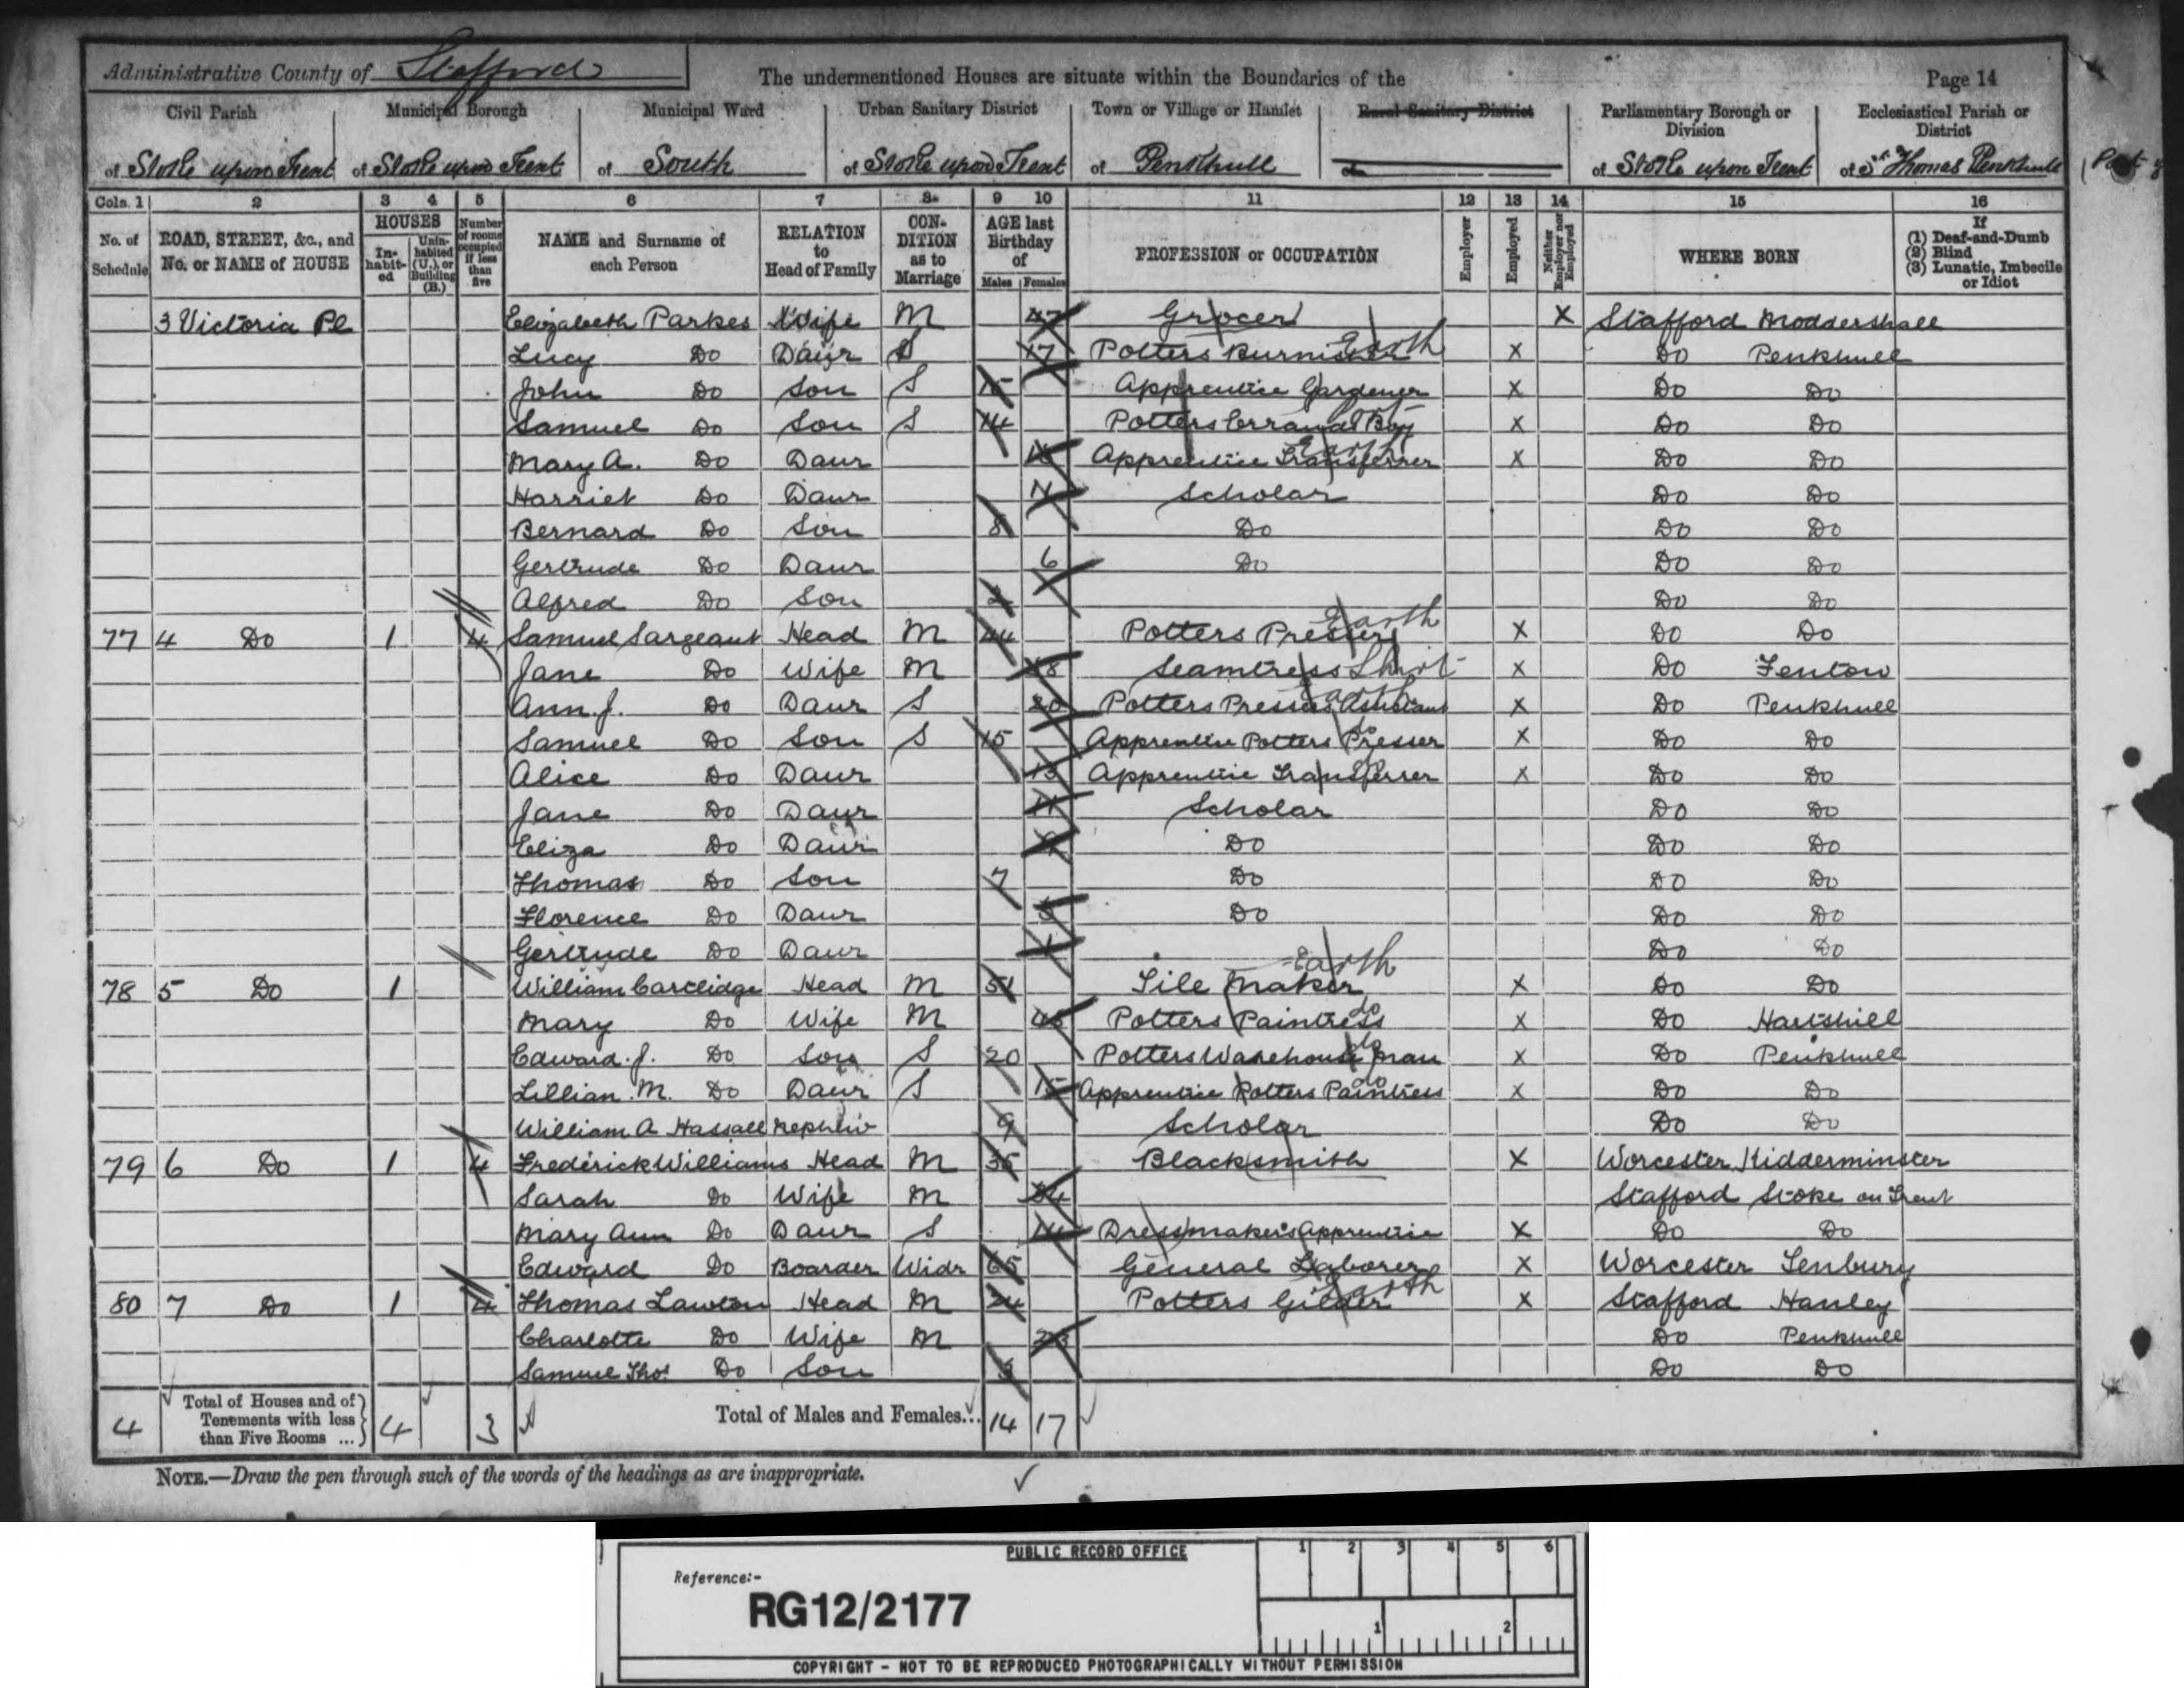 Administrative County of Stafford The undermentioned Houses are situate within the Boundaries of the Page 14
Civil Parish Municipal Borough Municipal Ward Urban Sanitary District Town or Village or Hamlet Rural Sanitary District Parliamentary Borough or Division Ecclesiastical Parish or District
of Stoke upon Trent of Stoke upon Trent of South of Stoke upon Trent of Penkhull of of Stoke upon Trent of St Thomas Penkhull
Cols. 1 2 3 4 5 6 7 8 9 10 11 12 13 14 15 16
No. of Schedule ROAD, STREET, &c., and No. or NAME of HOUSE HOUSES Inhabited Uninhabited (U.), or Building (B.) Number of rooms occupied if less than five NAME and Surname of each Person RELATION to Head of Family CONDITION as to Marriage AGE last Birthday of Males Females PROFESSION or OCCUPATION Employer Employed Neither Employer nor Employed WHERE BORN If (1) Deaf-and-Dumb (2) Blind (3) Lunatic, Imbecile or Idiot
3 Victoria Pl Elizabeth Parkes Wife M 47 Grocer X Stafford Moddershall
Lucy Do Daur S 17 Potters Burnisher Earth X Do Penkhull
John Do Son S 15 Apprentice Gardener X Do Do
Samuel Do Son S 14 Potters Errand Boy X Do Do
Mary A. Do Daur Apprentice Transferrer Earth X Do Do
Harriet Do Daur Scholar Do Do
Bernard Do Son 8 Do Do Do
Gertrude Do Daur 6 Do Do Do
Alfred Do Son 2 Do Do
77 4 Do 1 4 Samuel Sargeant Head M 44 Potters Presser Earth X Do Do
Jane Do Wife M Seamtress Shirt X Do Fenton
Ann J. Do Daur S 20 Potters Pressers Assistant Earth X Do Penkhull
Samuel Do Son S 15 Apprentice Potters Presser do X Do Do
Alice Do Daur 13 Apprentice Transferrer do X Do Do
Jane Do Daur 11 Scholar Do Do
Eliza Do Daur 9 Do Do Do
Thomas Do Son 7 Do Do Do
Florence Do Daur 5 Do Do Do
Gertrude Do Daur 1 Do Do
78 5 Do 1 William Cartlidge Head M 51 Tile Maker Earth X Do Do
Mary Do Wife M 48 Potters Paintress do X Do Hartshill
Edward J. Do Son S 20 Potters Warehouse man do X Do Penkhull
Lillian M. Do Daur S 15 Apprentice Potters Paintress do X Do Do
William A Hassall Nephew 9 Scholar Do Do
79 6 Do 1 4 Frederick Williams Head M 35 Blacksmith X Worcester Kidderminster
Sarah Do Wife M 34 Stafford Stoke on Trent
Mary Ann Do Daur S 14 Dressmakers Apprentice X Do Do
Edward Do Boarder Widr 65 General Laborer X Worcester Tenbury
80 7 Do 1 4 Thomas Lawton Head M 24 Potters Gilder Earth X Stafford Hanley
Charlotte Do Wife M 23 Do Penkhull
Samuel Thos Do Son 3 Do Do
4 Total of Houses and of Tenements with less than Five Rooms ... 4 3 Total of Males and Females... 14 17
NOTE.—Draw the pen through such of the words of the headings as are inappropriate.
PUBLIC RECORD OFFICE
1 2 3 4 5 6
Reference:-
RG12/2177
1 2
COPYRIGHT - NOT TO BE REPRODUCED PHOTOGRAPHICALLY WITHOUT PERMISSION